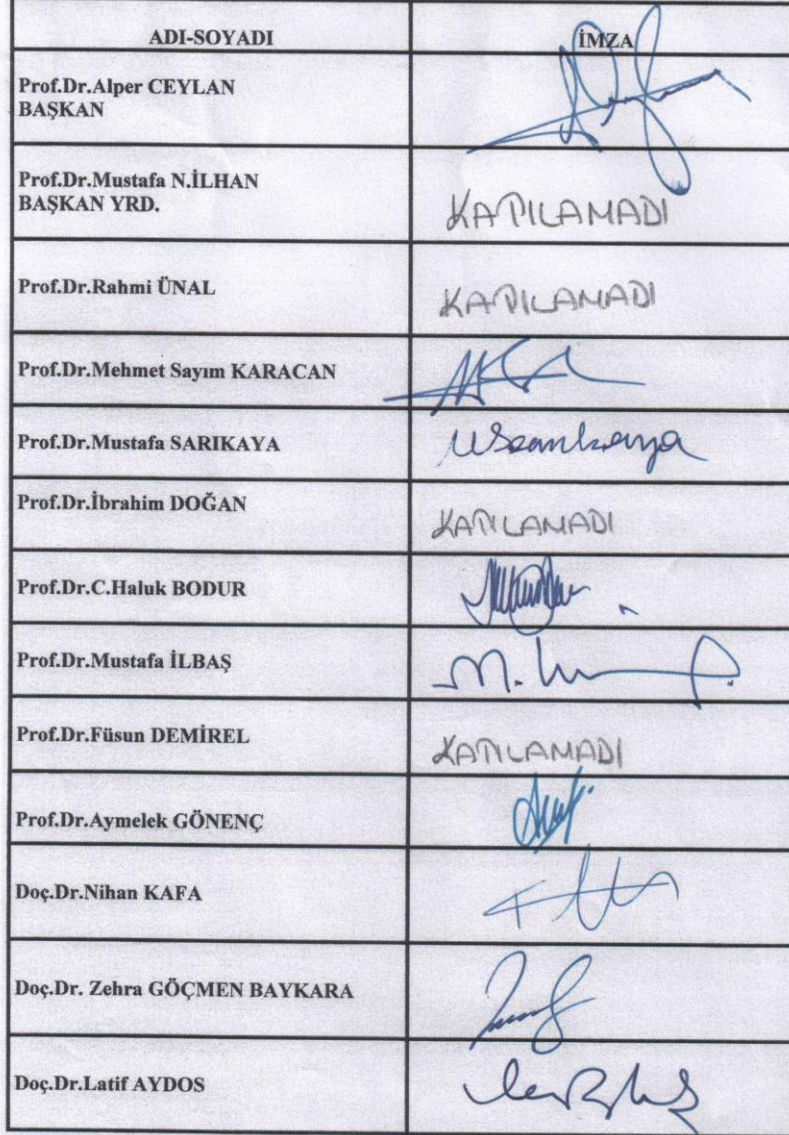 ADI-SOYADI İMZA
Prof.Dr.Alper CEYLAN
BAŞKAN
Prof.Dr.Mustafa N.İLHAN
BAŞKAN YRD.
KATILAMADI
Prof.Dr.Rahmi ÜNAL
KATILAMADI
Prof.Dr.Mehmet Sayım KARACAN
Prof.Dr.Mustafa SARIKAYA
Prof.Dr.İbrahim DOĞAN
KATILAMADI
Prof.Dr.C.Haluk BODUR
Prof.Dr.Mustafa İLBAŞ
Prof.Dr.Füsun DEMİREL
KATILAMADI
Prof.Dr.Aymelek GÖNENÇ
Doç.Dr.Nihan KAFA
Doç.Dr. Zehra GÖÇMEN BAYKARA
Doç.Dr.Latif AYDOS